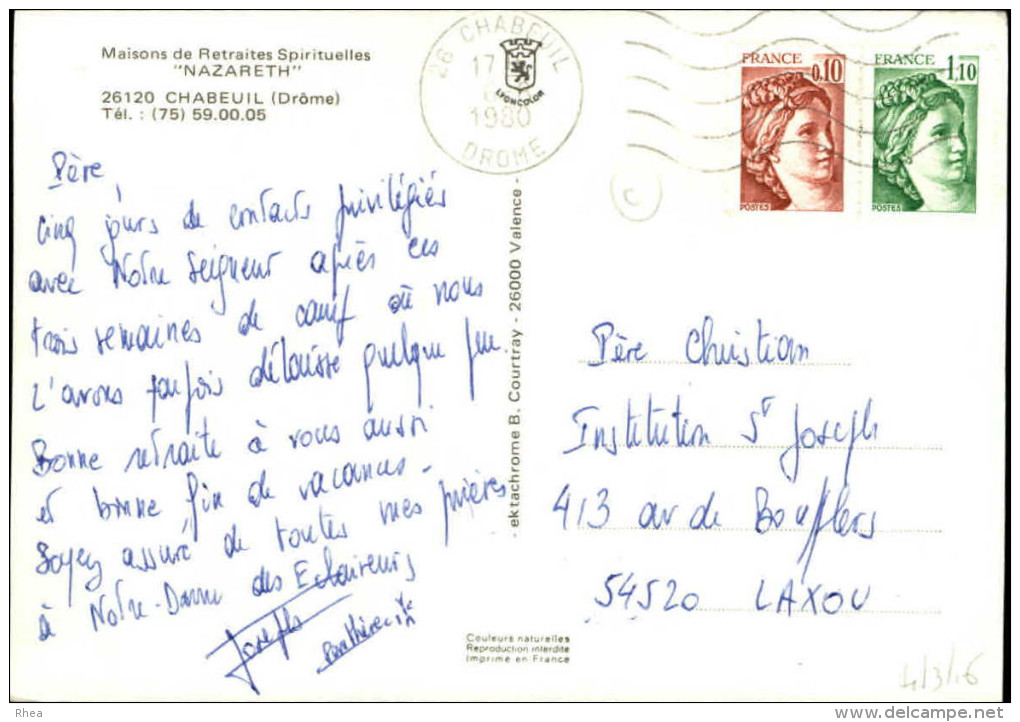 Maisons de Retraites Spirituelles
"NAZARETH"
26120 CHABEUIL (Drôme)
Tél. : (75) 59.00.05
26 CHABEUIL
17
1980
DROME
LYONCOLOR
FRANCE
0,10
POSTES
FRANCE
1,10
POSTES
Père,
cinq jours de contacts privilégiés
avec Notre Seigneur après ces
trois semaines de camp où nous
l'avons parfois délaissé quelque peu.
Bonne retraite à vous aussi
et bonne fin de vacances.
Soyez assuré de toutes mes prières
à Notre-Dame des Eclaireurs
Joseph
- ektachrome B. Courtray - 26000 Valence -
C
Père Christian
Institution St Joseph
413 av de Boufflers
54520 LAXOU
Couleurs naturelles
Reproduction interdite
Imprimé en France
Hosted by www.delcampe.net